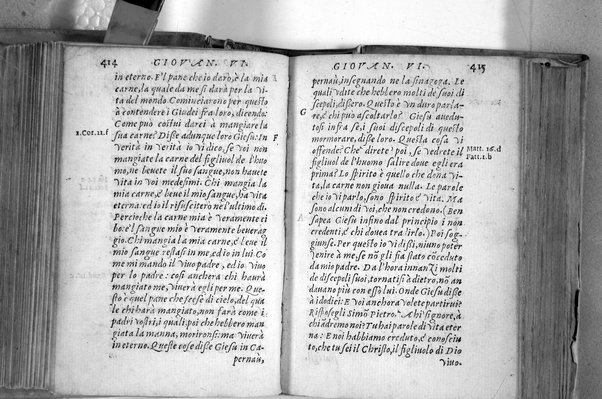 414
GIOVAN. VI
in eterno. E'l pane che io darò, è la mia
carne, la quale da me si darà per la vi
ta del mondo Cominciarono per questo
à contendere i Giudei fra loro, dicendo:
Come può costui darci à mangiare la
1.Cor.11.f
sua carne? Disse adunque loro Giesu: In
F
verità in verità io vi dico, se voi non
mangiate la carne del figliuol de l'huo
mo, ne beuete il suo sangue, non hauete
vita in voi medesimi. Chi mangia la
mia carne, e beue il mio sangue, ha vita
eterna: ed io il risusciterò ne l'ultimo dì.
Percioche la carne mia è veramente ci
bo: e'l sangue mio è veramente beuerag
gio. Chi mangia la mia carne, e beue il
mio sangue resta si in me, ed io in lui. Co
me mi mando il viuo padre, ed io viuo
per lo padre: così anchora chi haurà
mangiato me, viuerà egli per me. Que-
sto è quel pane che scese di cielo, del qua
le chi harà mangiato, non farà come i
padri vostri, i quali poi che hebbero man
giata la manna, morirono: ma viuerà
in eterno. Queste cose disse Giesu in Ca
pernaù,
GIOVAN. VI.
415
pernaù, insegnando ne la sinagoga. Le
quali vdite che hebbero molti de suoi di
scepoli, disero. Questo è vn duro parla-
G
re, e chi può ascoltarlo? Giesu auedu-
tosi infra se, i suoi discepoli di questo
mormorare, disse loro. Questa cosa vi
Matt. 26.d
offende? Che direte poi, se vedrete il
Fatt.1.b
figliuol de l'huomo salire doue egli era
prima? Lo spirito è quello che dona vi-
ta, la carne non gioua nulla. Le parole
che io vi parlo, sono spirito e vita. Ma
sono alcuni di voi, che non credono. (Ben
sapea Giesu infino dal principio i non
credenti, e chi douea tradirlo.) Poi sog-
giunse. Per questo io vi dissi, niuno poter
venire à me, se nò gli sia stato cöceduto
da mio padre. Da l'hora innanzi molti
de discepoli suoi, tornatisi à dietro, nò an
dauano più con esso lui. Onde Giesu disse
à i dodici: E voi anchora volete partirui?
Risposegli Simō Pietro. A hi signore, à
chi ädremo noi? Tu hai parole di vita eter
na: E noi habbiamo creduto, e conosciu
to, che tu sei il Christo, il figliuolo di Dio
viuo.